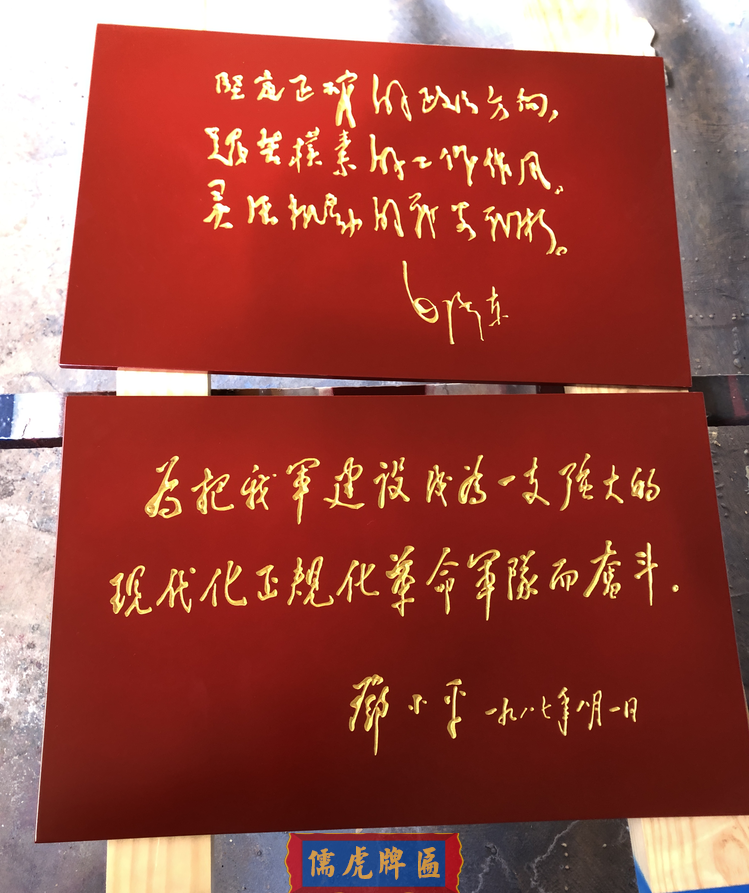 坚定正确的政治方向，
艰苦朴素的工作作风。
灵活机动的战略战术。
毛泽东
为把我军建设成为一支强大的
现代化正规化革命军队而奋斗。
邓小平 一九八七年八月一日
儒虎牌匾